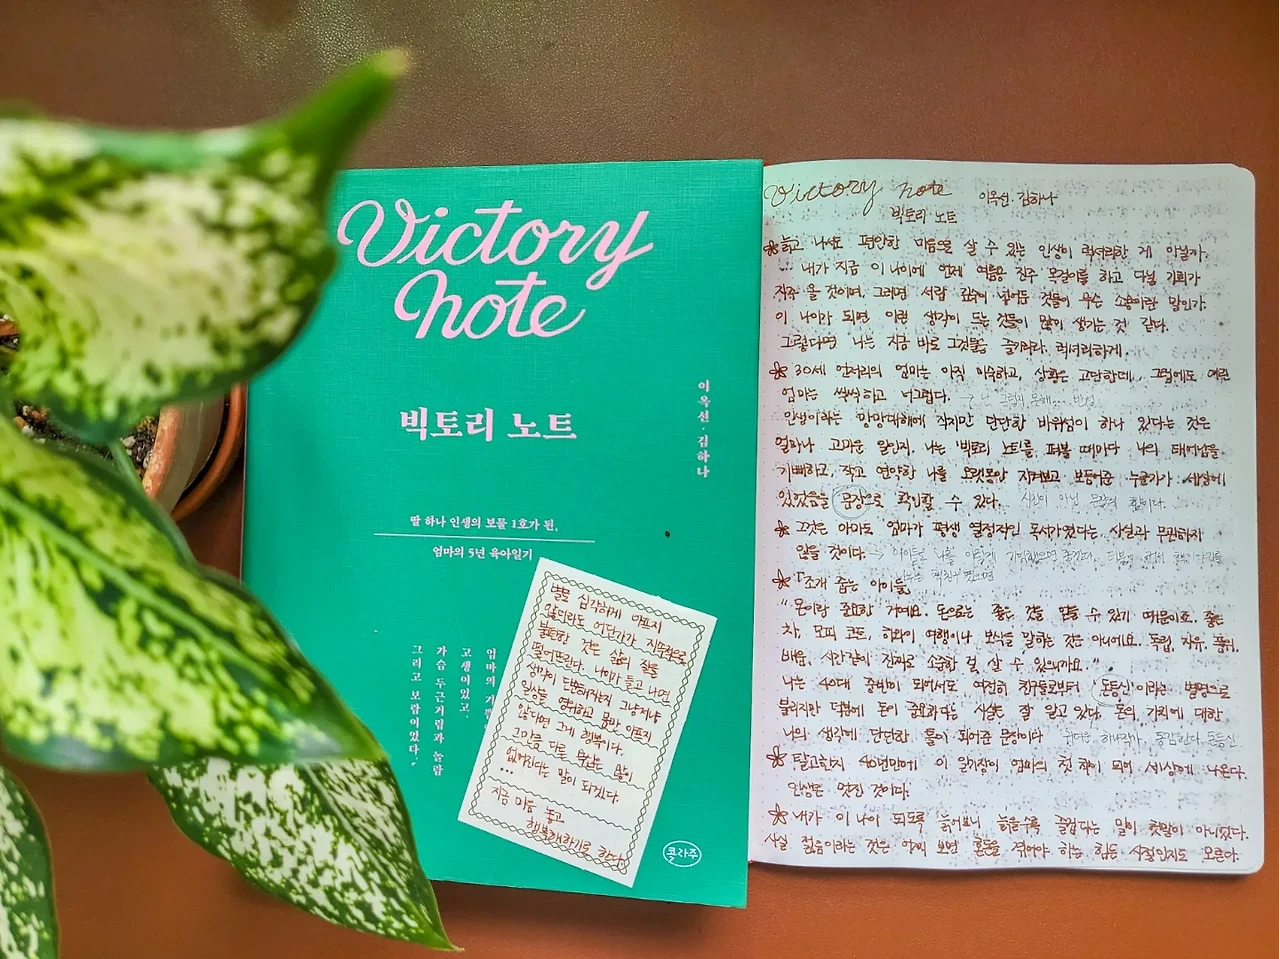 Victory
note
빅토리 노트
이옥선·김하나
딸 하나 인생의 보물 1호가 된,
엄마의 5년 육아일기
엄마의 기쁨
고생이었고,
가슴 두근거림과 놀람
그리고 보람이었다."
별로 심각하게 아프지
않더라도 어딘가가 지속적으로
불편한 것은 삶의 질을
떨어뜨린다. 나이가 들고 나면
생각이 단순해지는지 그냥저냥
일상을 영위하고 몸만 아프지
않다면 그게 행복이다.
그만큼 다른 욕심은 많이
없어진다는 말이 되겠다.
...
지금 마음 놓고
행복해하기로 한다.
콜라주
Victory note 이옥선. 김하나
빅토리 노트
늙고 나서도 평안한 마음으로 살 수 있는 인생이 럭셔리한 게 아닐까.
... 내가 지금 이 나이에 언제 여름용 진주 목걸이를 하고 다닐 기회가
자주 올 것이며, 그러면 서랍 깊숙이 넣어둔 것들이 무슨 소용이란 말인가.
이 나이가 되면 이런 생각이 드는 것들이 많이 생기는 것 같다.
그렇다면 나는 지금 바로 그것들을 즐기리라. 럭셔리하게.
30세 언저리의 엄마는 아직 미숙하고, 상황은 고단한데, 그럼에도 어린
엄마는 씩씩하고 너그럽다. 난 그렇지 못해... 반성
인생이라는 망망대해에 작지만 단단한 바위섬이 하나 있다는 것은
얼마나 고마운 일인지. 나는 '빅토리 노트'를 펴볼 때마다 나의 태어남을
기뻐하고 작고 연약한 나를 오랫동안 지켜보고 보듬어준 누군가가 세상에
있었음을 문장으로 확인할 수 있다. 사진이 아닌 문장의 힘이다.
그것은 아마도 엄마가 평생 열정적인 독서가였다는 사실과 무관하지
않을 것이다. 아이들도 나를 이렇게 기억했으면 좋겠다.
「조개 줍는 아이들」
"돈이란 중요한 거예요. 돈으로는 좋은 것을 얻을 수 있기 때문이죠. 좋은
차, 모피 코트, 하와이 여행이나 보석을 말하는 것은 아니에요. 독립, 자유, 품위,
배움, 시간같이 진짜로 소중한 걸 살 수 있으니까요."
나는 40대 중반이 되어서도 여전히 친구들로부터 '돈등신'이라는 별명으로
불리지만 덕분에 돈이 중요하다는 사실은 잘 알고 있다. 돈의 가치에 대한
나의 생각에 단단한 틀이 되어준 문장이다 하나작가, 동감한다 돈등신
탈고한지 40년만에 이 일기장이 엄마의 첫 책이 되어 세상에 나온다.
인생은 멋진 것이다.
내가 이 나이 되도록 늙어보니 늙을수록 즐겁다는 말이 헛말이 아니었다.
사실 젊음이라는 것은 어찌 보면 혼돈을 겪어야 하는 힘든 시절인지도 모른다.